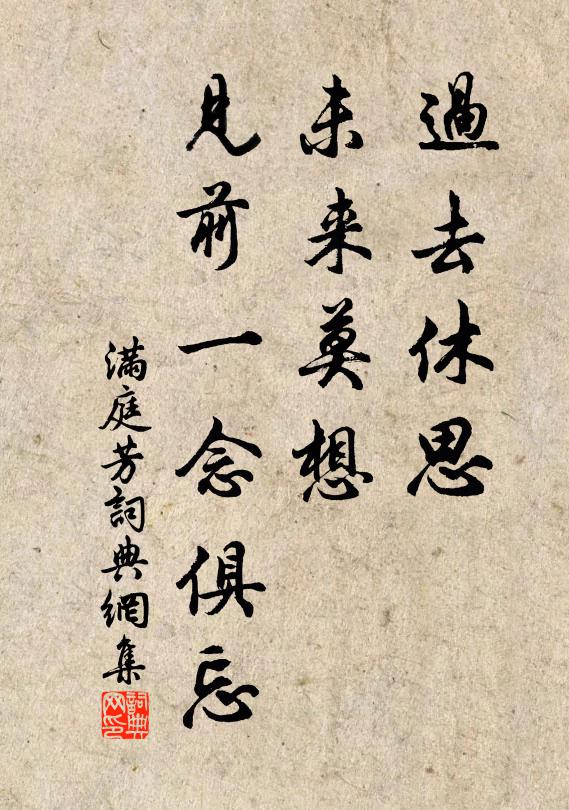 過去休思
未来莫想
見前一念俱忘
滿庭芳詞典網集
詞典网印